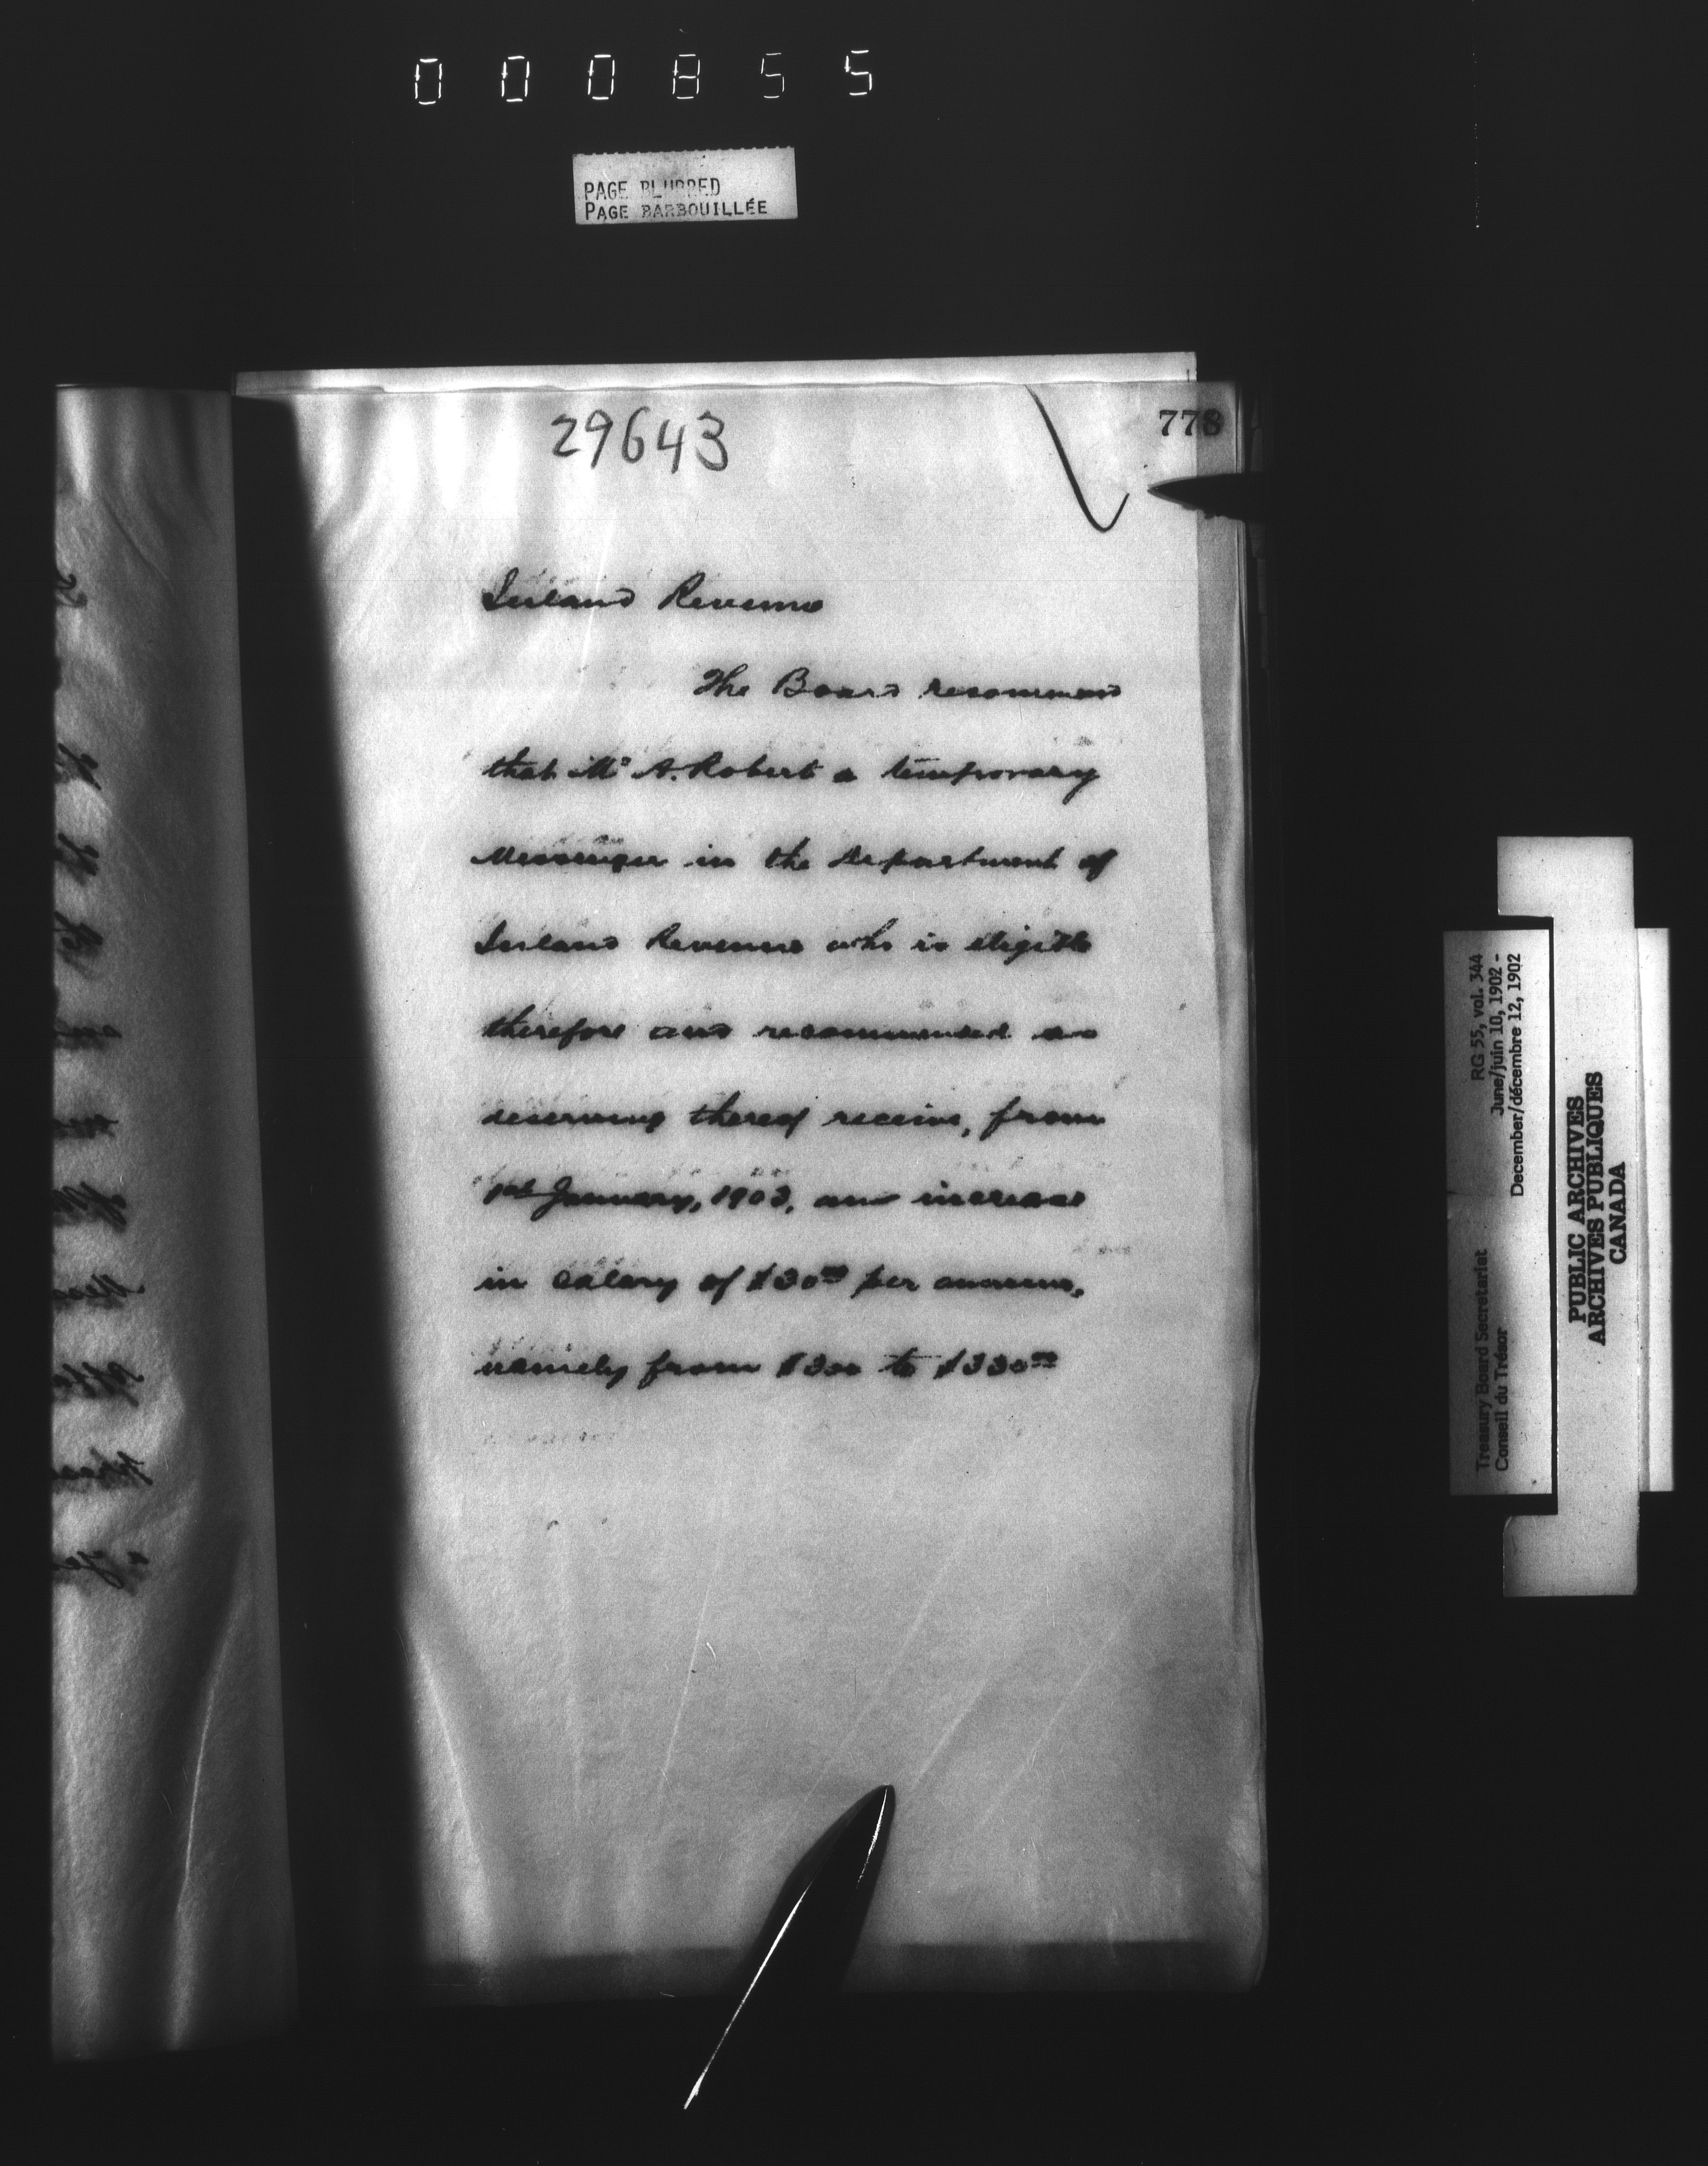 000855
PAGE BLURRED
PAGE BARBOUILLÉE
778
29643
Inland Revenue
The Board recommend
that Mr A. Robert a temporary
Messenger in the Department of
Inland Revenue who is eligible
therefore and recommended as
deserving thereof receive, from
1st January, 1903, an increase
in salary of $30.00 per annum,
namely from $300 to $330.00
RG 55, vol. 344
June/juin 10, 1902 -
December/décembre 12, 1902
Treasury Board Secretariat
Conseil du Trésor
PUBLIC ARCHIVES
ARCHIVES PUBLIQUES
CANADA